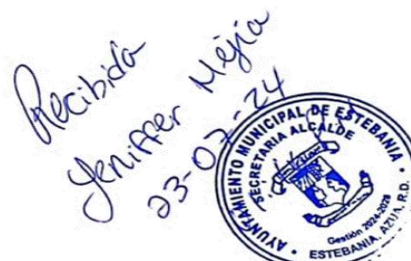 Recibida
Jeniffer Mejia
23-07-24
AYUNTAMIENTO MUNICIPAL DE ESTEBANIA
SECRETARIA ALCALDE
Gestión 2024-2028
ESTEBANIA, AZUA, R.D.